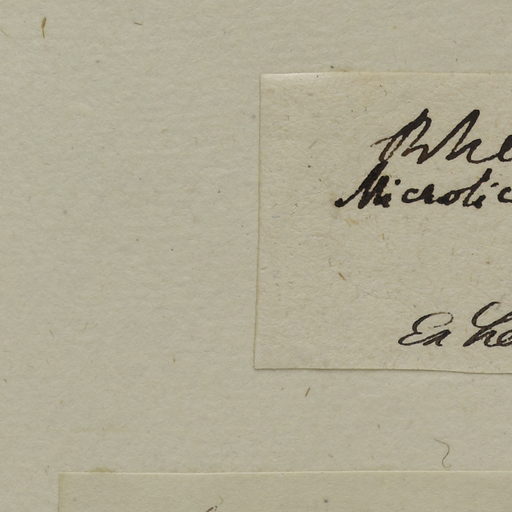 Rhe
Microlic
Ex He